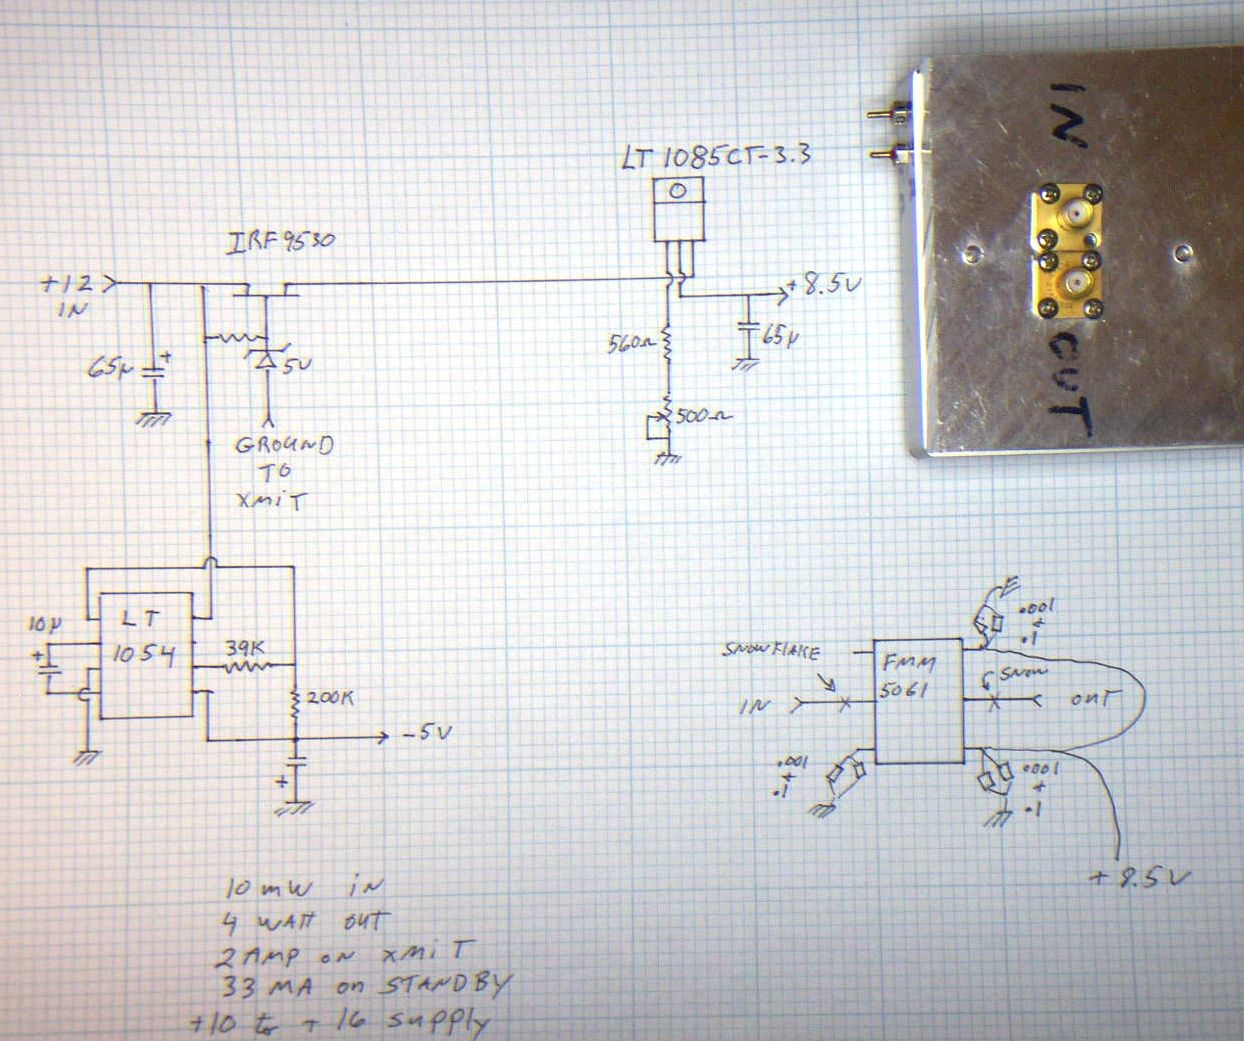 LT 1085CT-3.3
IRF9530
+12
IN
65µ
+
5V
GROUND
TO
XMIT
+8.5V
65µ
560Ω
500Ω
IN
OUT
10µ
+
LT
1054
39K
200K
-5V
+
SNOWFLAKE
IN
FMM
5061
SNOW
OUT
.001
+
.1
.001
+
.1
.001
+
.1
+8.5V
10 mW IN
4 WATT OUT
2 AMP ON XMIT
33 MA on STANDBY
+10 to +16 supply